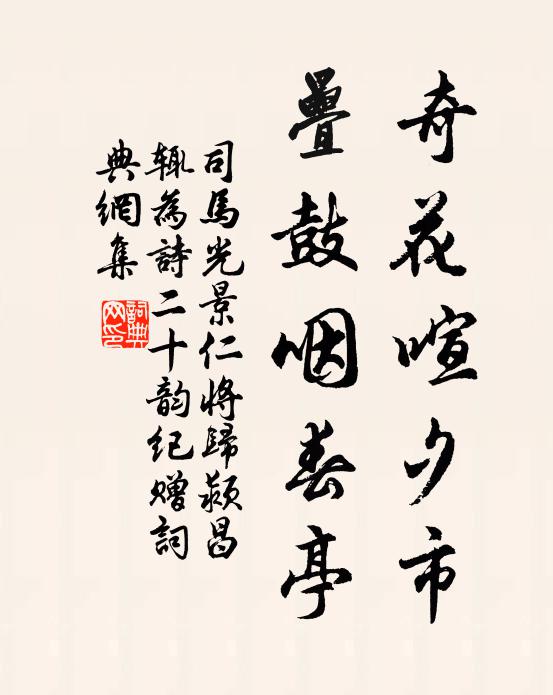 奇花喧夕市
疊鼓咽春亭
司馬光景仁將歸颍昌
輒為詩二十韵纪赠詞
典網集
詞典网印